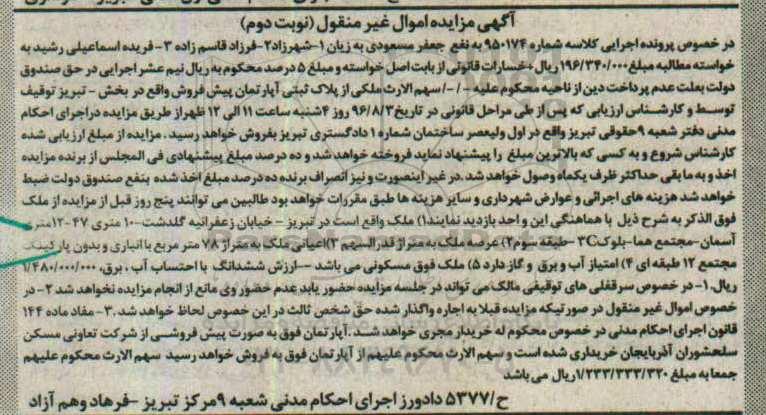 آگهی مزایده اموال غیر منقول (نوبت دوم)
در خصوص پرونده اجرایی کلاسه شماره ۹۵۰۱۷۴ به نفع جعفر مسعودی به زیان ۱-شهرزاد۲-فرزاد قاسم زاده ۳-فریده اسماعیلی رشید به
خواسته مطالبه مبلغ ۱۹۶/۳۴۰/۰۰۰ ریال+خسارات قانونی از بابت اصل خواسته و مبلغ ۵ درصد محکوم به ریال نیم عشر اجرایی در حق صندوق
دولت بعلت عدم پرداخت دین از ناحیه محکوم علیه -/-/ سهم الارث ملکی از پلاک ثبتی آپارتمان پیش فروش واقع در بخش - تبریز توقیف
توسط و کارشناس ارزیابی که پس از طی مراحل قانونی در تاریخ ۹۶/۸/۳ روز ۴شنبه ساعت ۱۱ الی ۱۲ ظهر از طریق مزایده در اجرای احکام
مدنی دفتر شعبه ۹حقوقی تبریز واقع در اول ولیعصر ساختمان شماره ۱ دادگستری تبریز بفروش خواهد رسید. مزایده از مبلغ ارزیابی شده
کارشناس شروع و به کسی که بالاترین مبلغ را پیشنهاد نماید فروخته خواهد شد و ده درصد مبلغ پیشنهادی فی المجلس از برنده مزایده
اخذ و به مابقی حداکثر ظرف یکماه وصول خواهد شد. در غیر اینصورت و نیز انصراف برنده ده درصد مبلغ اخذ شده بنفع صندوق دولت ضبط
خواهد شد هزینه های اجرائی و عوارض شهرداری و سایر هزینه ها طبق مقررات خواهد بود طالبین می توانند پنج روز قبل از مزایده از ملک
فوق الذکر به شرح ذیل با هماهنگی این واحد بازدید نمایند۱) ملک واقع است در تبریز - خیابان زعفرانیه گلدشت-۱۰ متری ۴۷-۱۲متری
آسمان-مجتمع هما-بلوک۳C -طبقه سوم۲) عرصه ملک به متراژ قدرالسهم ۳)اعیانی ملک به متراژ ۷۸ متر مربع با انباری و بدون پارکینگ
مجتمع ۱۲ طبقه ای ۴) امتیاز آب و برق و گاز دارد ۵) ملک فوق مسکونی می باشد --ارزش ششدانگ با احتساب آب، برق، ۱/۴۸۰/۰۰۰/۰۰۰
ریال. ۱- در خصوص سرقفلی های توقیفی مالک می تواند در جلسه مزایده حضور یابد عدم حضور وی مانع از انجام مزایده نخواهد شد ۲-در
خصوص اموال غیر منقول در صورتیکه مزایده قبلا به اجاره واگذار شده حق شخص ثالث در این خصوص لحاظ خواهد شد. ۳- مفاد ماده ۱۴۴
قانون اجرای احکام مدنی در خصوص محکوم له خریدار مجری خواهد شد. آپارتمان فوق به صورت پیش فروشی از شرکت تعاونی مسکن
سلحشوران آذربایجان خریداری شده است و سهم الارث محکوم علیهم از آپارتمان فوق به فروش خواهد رسید سهم الارث محکوم علیهم
جمعا به مبلغ ۱/۲۳۳/۳۳۳/۳۲۰ریال می باشد
ح/۵۳۷۷ دادورز اجرای احکام مدنی شعبه ۹مرکز تبریز -فرهاد وهم آزاد